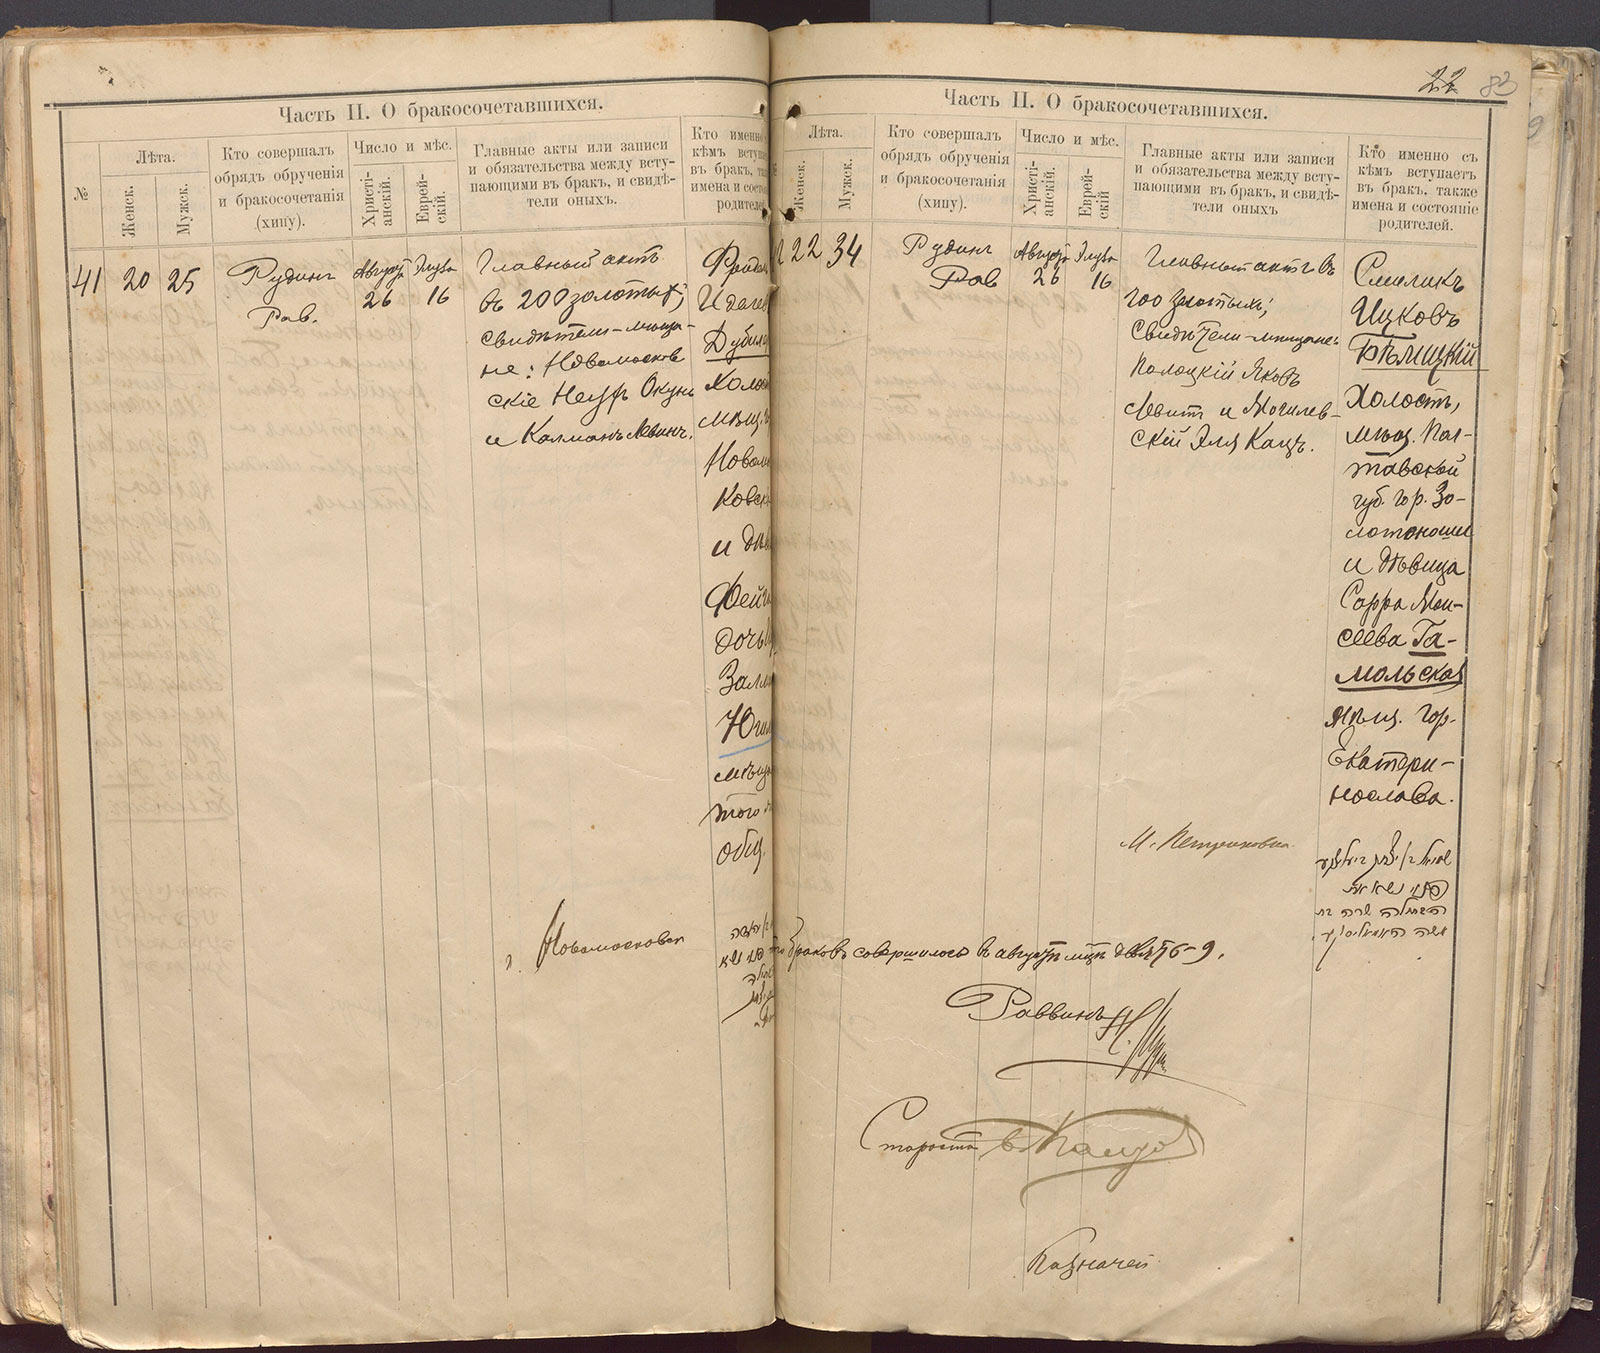 Часть II. О бракосочетавшихся.
№
Лѣта.
Женск.
Мужск.
Кто совершалъ
обрядъ обрученія
и бракосочетанія
(хипу).
Число и мѣс.
Христі-
анскій.
Еврей-
скій.
Главные акты или записи
и обязательства между всту-
пающими въ бракъ, и свидѣ-
тели оныхъ.
Кто именно
кѣмъ вступа
въ бракъ, та
имена и состо
родителей
41
20
25
Рудинъ
Рав.
Августъ
26
Элула
16
Главный актъ
въ 200 золотых;
свидѣтели-мѣща-
не: Новомосков
скіе Неухъ Окунь
и Калманъ Левинъ.
Дубил
Холост
мѣщ.
Новомо
ковск
и дѣв
Фейг
дочь
Залм
Югил
мѣщ
того
общ.
г. Новомосковск
22 83
Часть II. О бракосочетавшихся.
Лѣта.
Женск.
Мужск.
Кто совершалъ
обрядъ обрученія
и бракосочетанія
(хипу).
Число и мѣс.
Христі-
анскій.
Еврей-
скій
Главные акты или записи
и обязательства между всту-
пающими въ бракъ, и свидѣ-
тели оныхъ
Кто именно съ
кѣмъ вступаетъ
въ бракъ, также
имена и состояніе
родителей.
22
34
Рудинъ
Рав
Августъ
26
Элула
16
Главный актъ въ
200 золотыхъ;
Свидѣтели-мѣщане:
Полоцкій Яковъ
Левитъ и Могилев-
скій Эля Кацъ.
Смеликъ
Ицковъ
Бѣлицкій
Холостъ,
мѣщ. Пол-
тавской
губ. гор. Зо-
лотоноши
и дѣвица
Сарра Мои-
сеева Га-
мольская
мѣщ. гор.
Екатери-
нослава.
браковъ совершилось въ августѣ мцѣ девять-9.
Раввинъ
Староста
Казначей